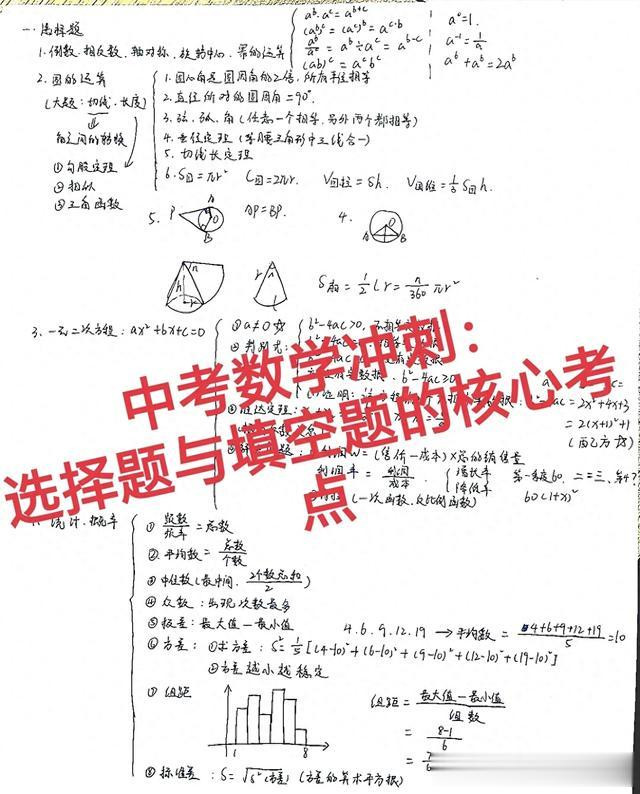 一.选择题
1.倒数.相反数.轴对称.旋转中心.幂的运算
a^b·a^c=a^{b+c}
(a^b)^c=(a^c)^b=a^{c·b}
a^b/a^c=a^b÷a^c=a^{b-c}
(ab)^c=a^c b^c
a^0=1.
a^{-1}=1/a
a^b+a^b=2a^b
2.圆的运算
(大题:切线.长度)
角之间的转换
①勾股定理
②相似
③三角函数
1.圆心角是圆周角的2倍,所有半径相等
2.直径所对的圆周角=90°.
3.弦.弧.角(任意一个相等,另外两个都相等)
4.垂径定理(等腰三角形中三线合一)
5.切线长定理
6.S圆=πr² C圆=2πr. V圆柱=Sh. V圆锥=1/3 S圆h.
5. P A O B AP=BP. 4. O A B
n h r r n l
S扇=1/2 Lr=n/360 πr²
3.一元二次方程:ax²+bx+c=0
①a≠0
②判别式: b²-4ac>0,
b²-4ac≥0
=2x²+4x+3
=2(x+1)²+1
(配方)
③韦达定理:
W=(售价-成本)×总的销售量
利润率=利润/成本 增长率 降低率
60(1+x)²
(一次函数.反比例函数)
中考数学冲刺:
选择题与填空题的核心考
点
统计.概率
①频数/频率=总数
②平均数=总数/个数
③中位数(最中间.2个数总和/2)
④众数:出现次数最多
⑤极差:最大值-最小值
4.6.9.12.19→平均数=4+6+9+12+19/5=10
⑥方差:①求方差:S²=1/5[(4-10)²+(6-10)²+(9-10)²+(12-10)²+(19-10)²]
②方差越小越稳定
⑦组距
1 8
组距=最大值-最小值/组数
=8-1/6
=7/6
⑧标准差:S=√S²(方差)(方差的算术平方根)